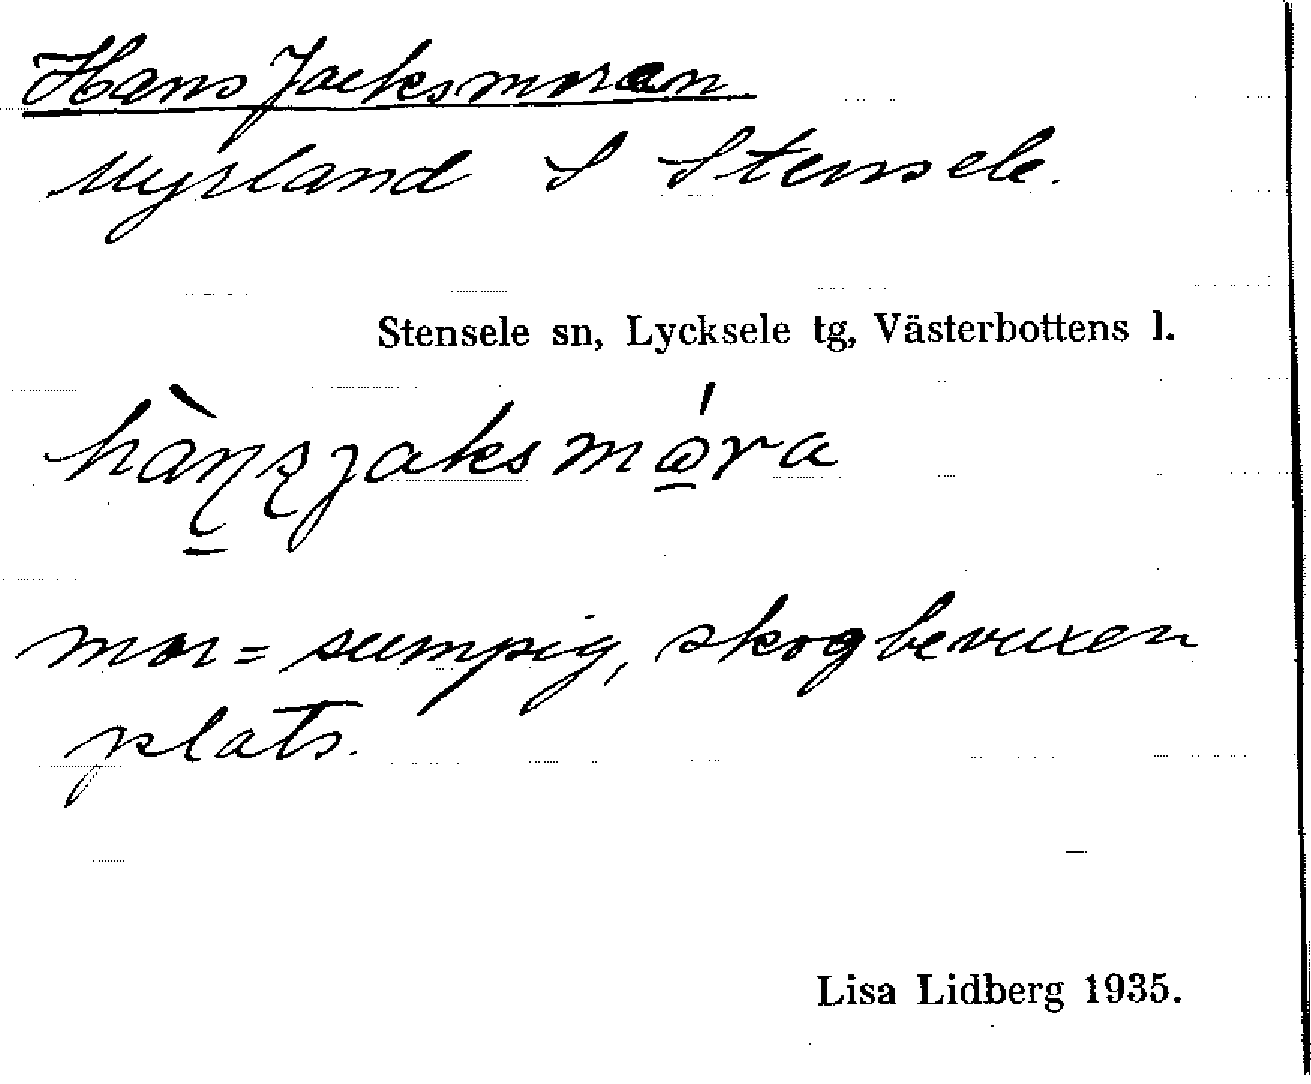 Hans Jacksmoran
Myrland S Stensele.
Stensele sn, Lycksele tg, Västerbottens l.
mor = sumpig, skogbevuxen
plats.
Lisa Lidberg 1935.